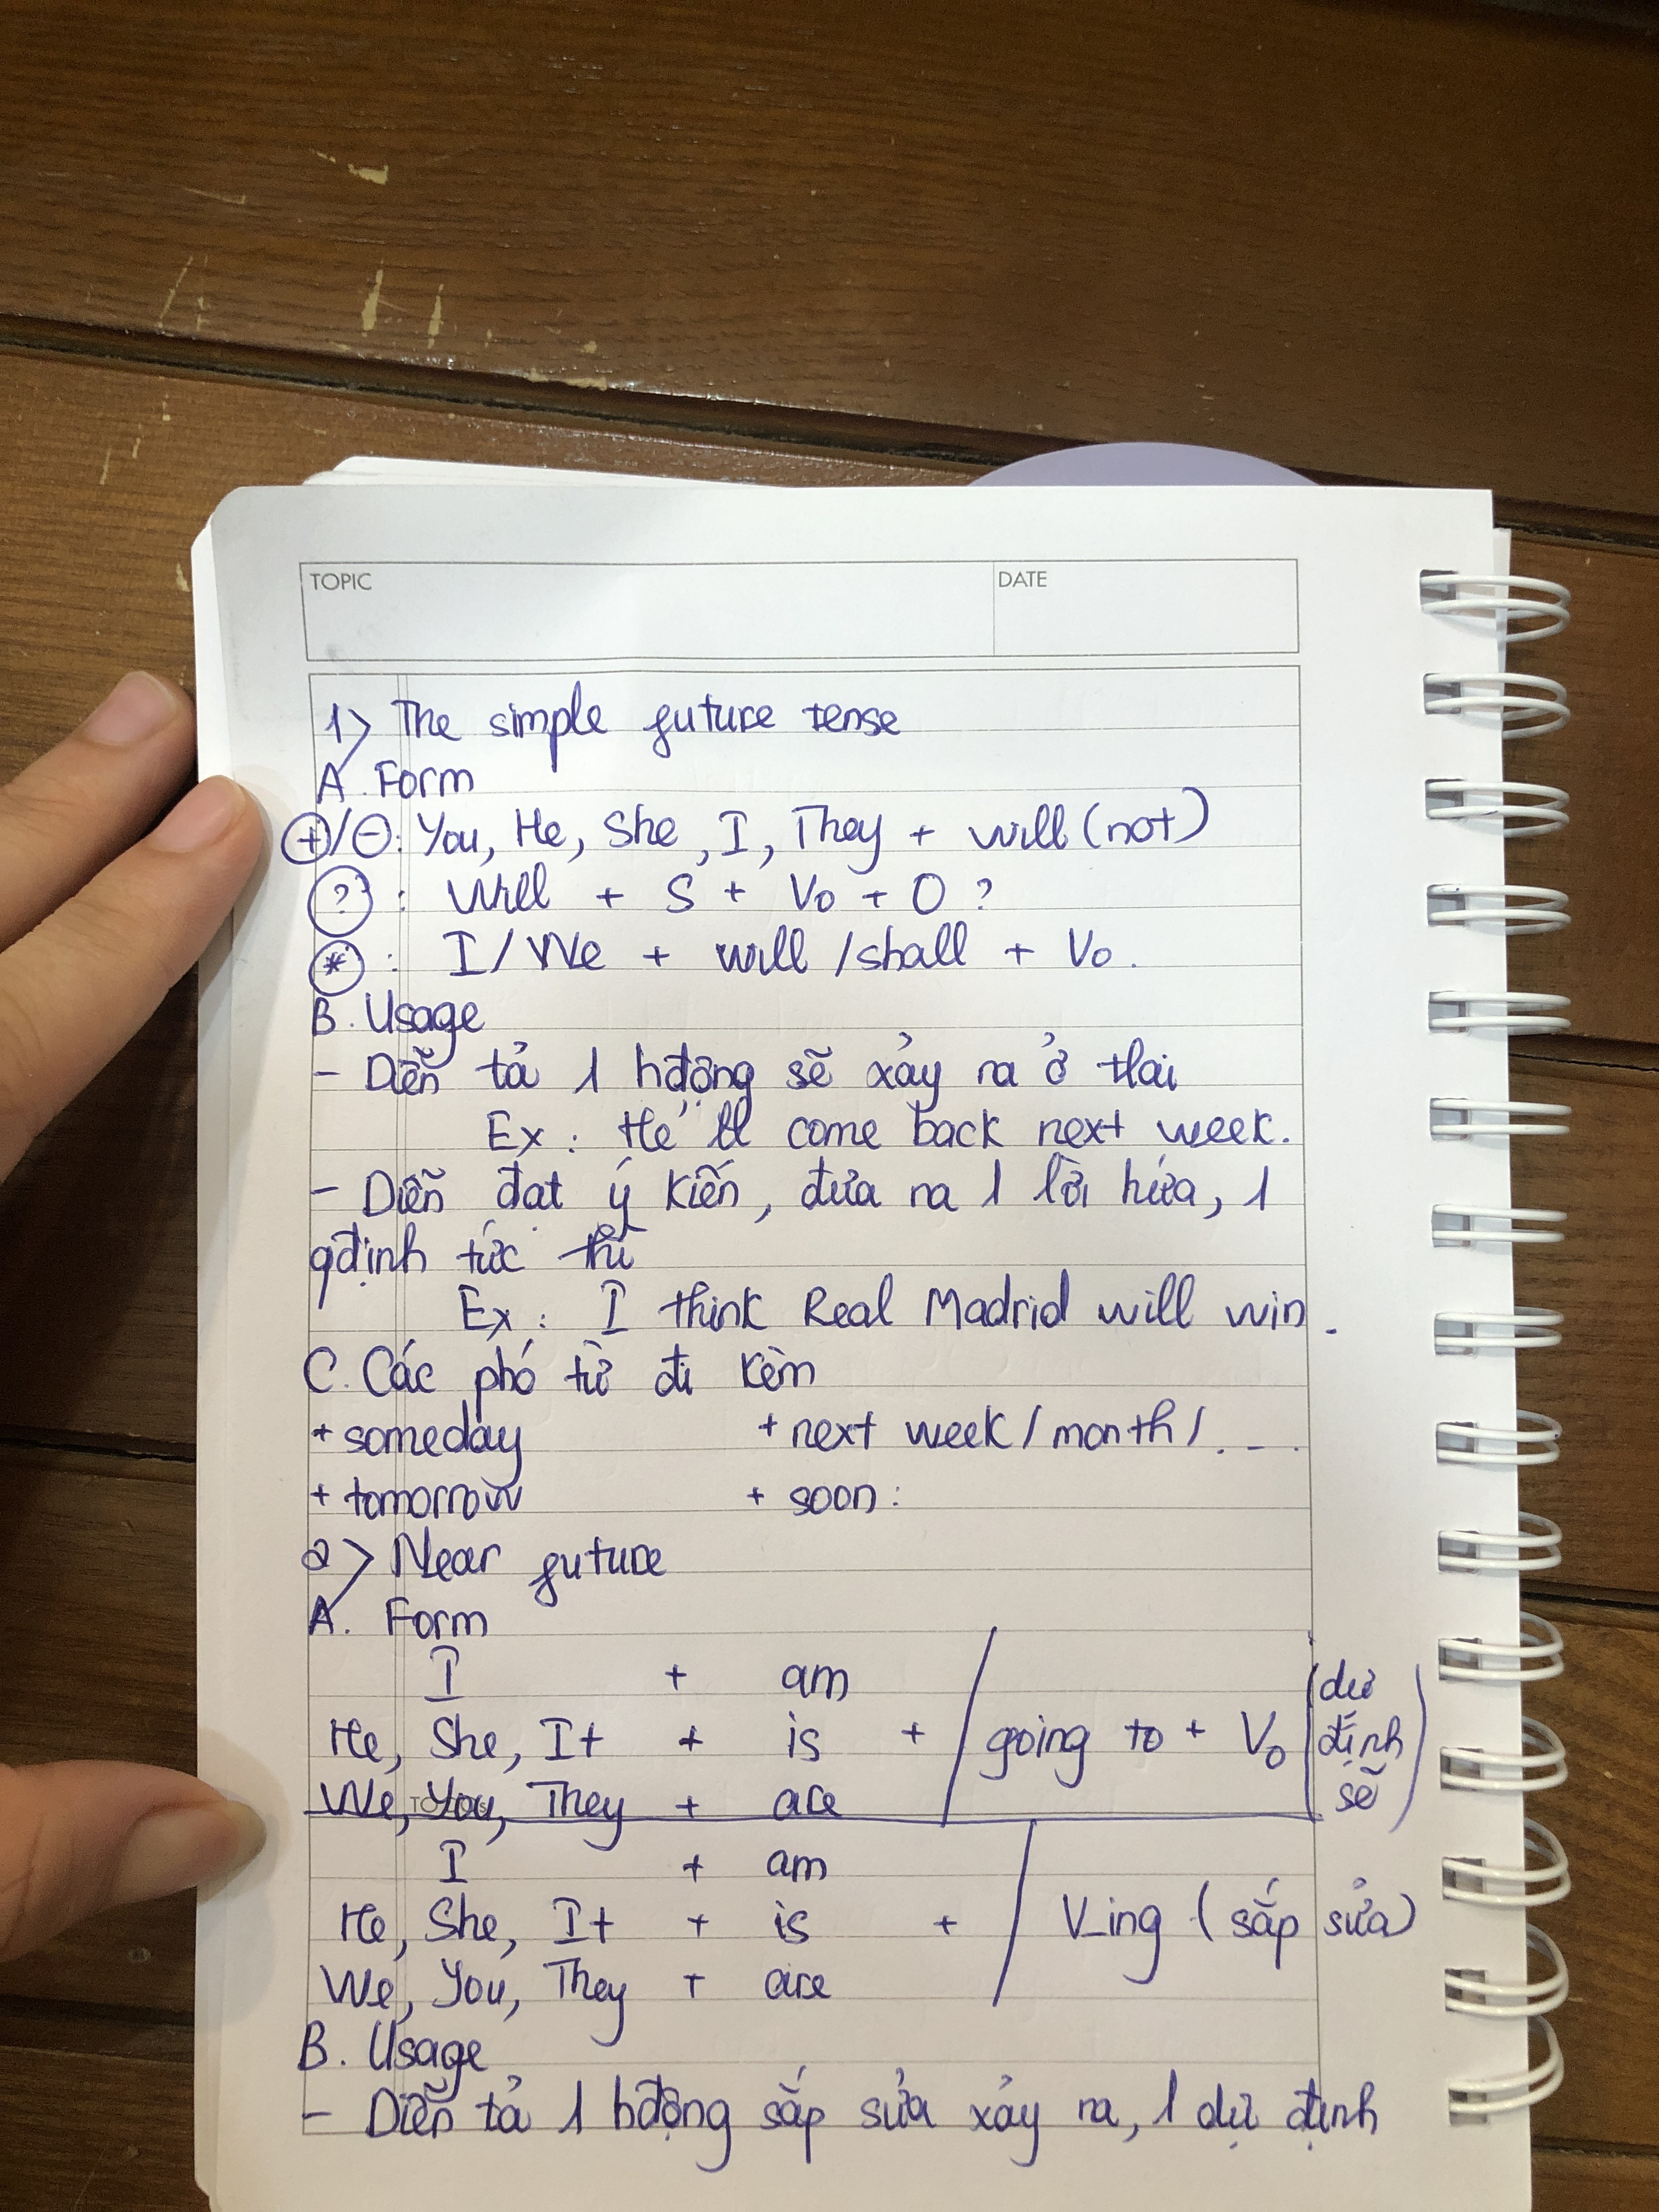 TOPIC DATE
1> The simple future tense
A. Form
(+)/(-): You, He, She, I, They + will (not)
(?) : Will + S + Vo + O ?
(*) : I/We + will /shall + Vo.
B. Usage
- Diễn tả 1 hđộng sẽ xảy ra ở tlai
Ex : He'll come back next week.
- Diễn đạt ý kiến, đưa ra 1 lời hứa, 1
qđịnh tức thì
Ex : I think Real Madrid will win.
C. Các phó từ đi kèm
+ someday + next week / month / . - .
+ tomorrow + soon :
2> Near future
A. Form
I + am
He, She, It + is + / going to + Vo (dự định sẽ)
We, You, They + are
I + am
He, She, It + is + / V_ing ( sắp sửa)
We, You, They + are
B. Usage
- Diễn tả 1 hđộng sắp sửa xảy ra, 1 dự định